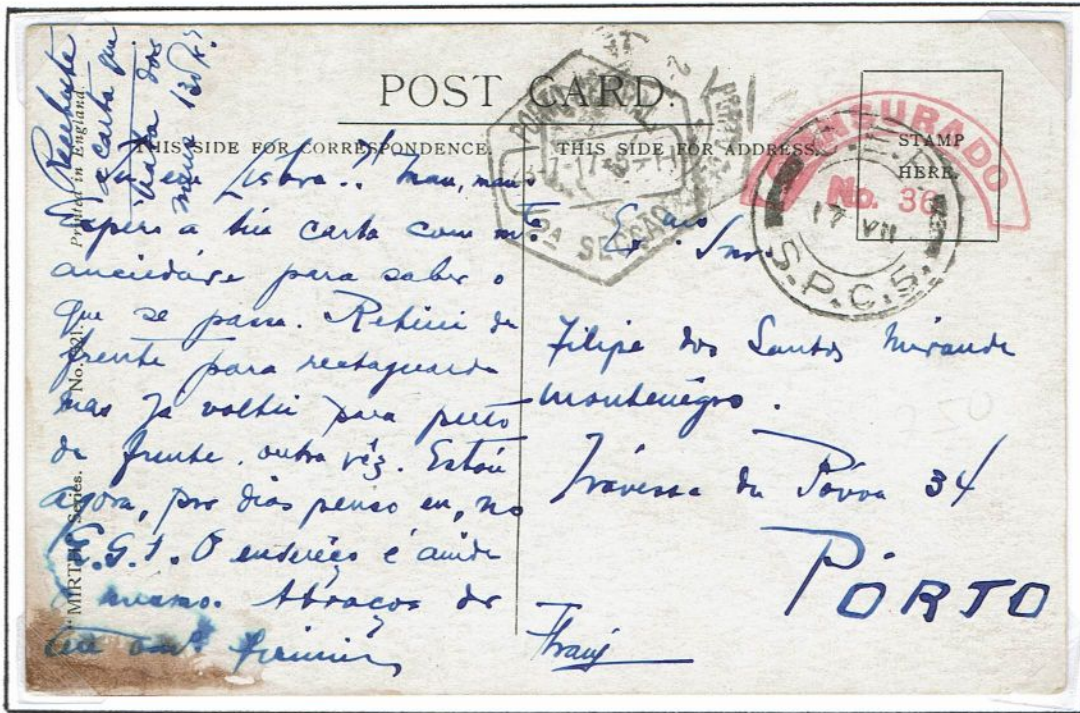 POST CARD.
THIS SIDE FOR CORRESPONDENCE.
THIS SIDE FOR ADDRESS.
STAMP
HERE.
CENSURADO
No. 36
17 VII
S.P.C.5.
2ª SECÇÃO
Printed in England.
"MIRTHS" Series. No. 921.
a carta que
em Lisboa
espero a tua carta com
anciedade para saber o
que se passa. Retirei da
frente para rectaguarda
mas já voltei para perto
da frente outra vêz. Estou
agora, por dias penso eu, no
Q.G.1. O endereço é ainda
o mesmo. Abraços do
teu
Filipe dos Santos Miranda
Montenégro.
Travessa da Póvoa 34
PÔRTO